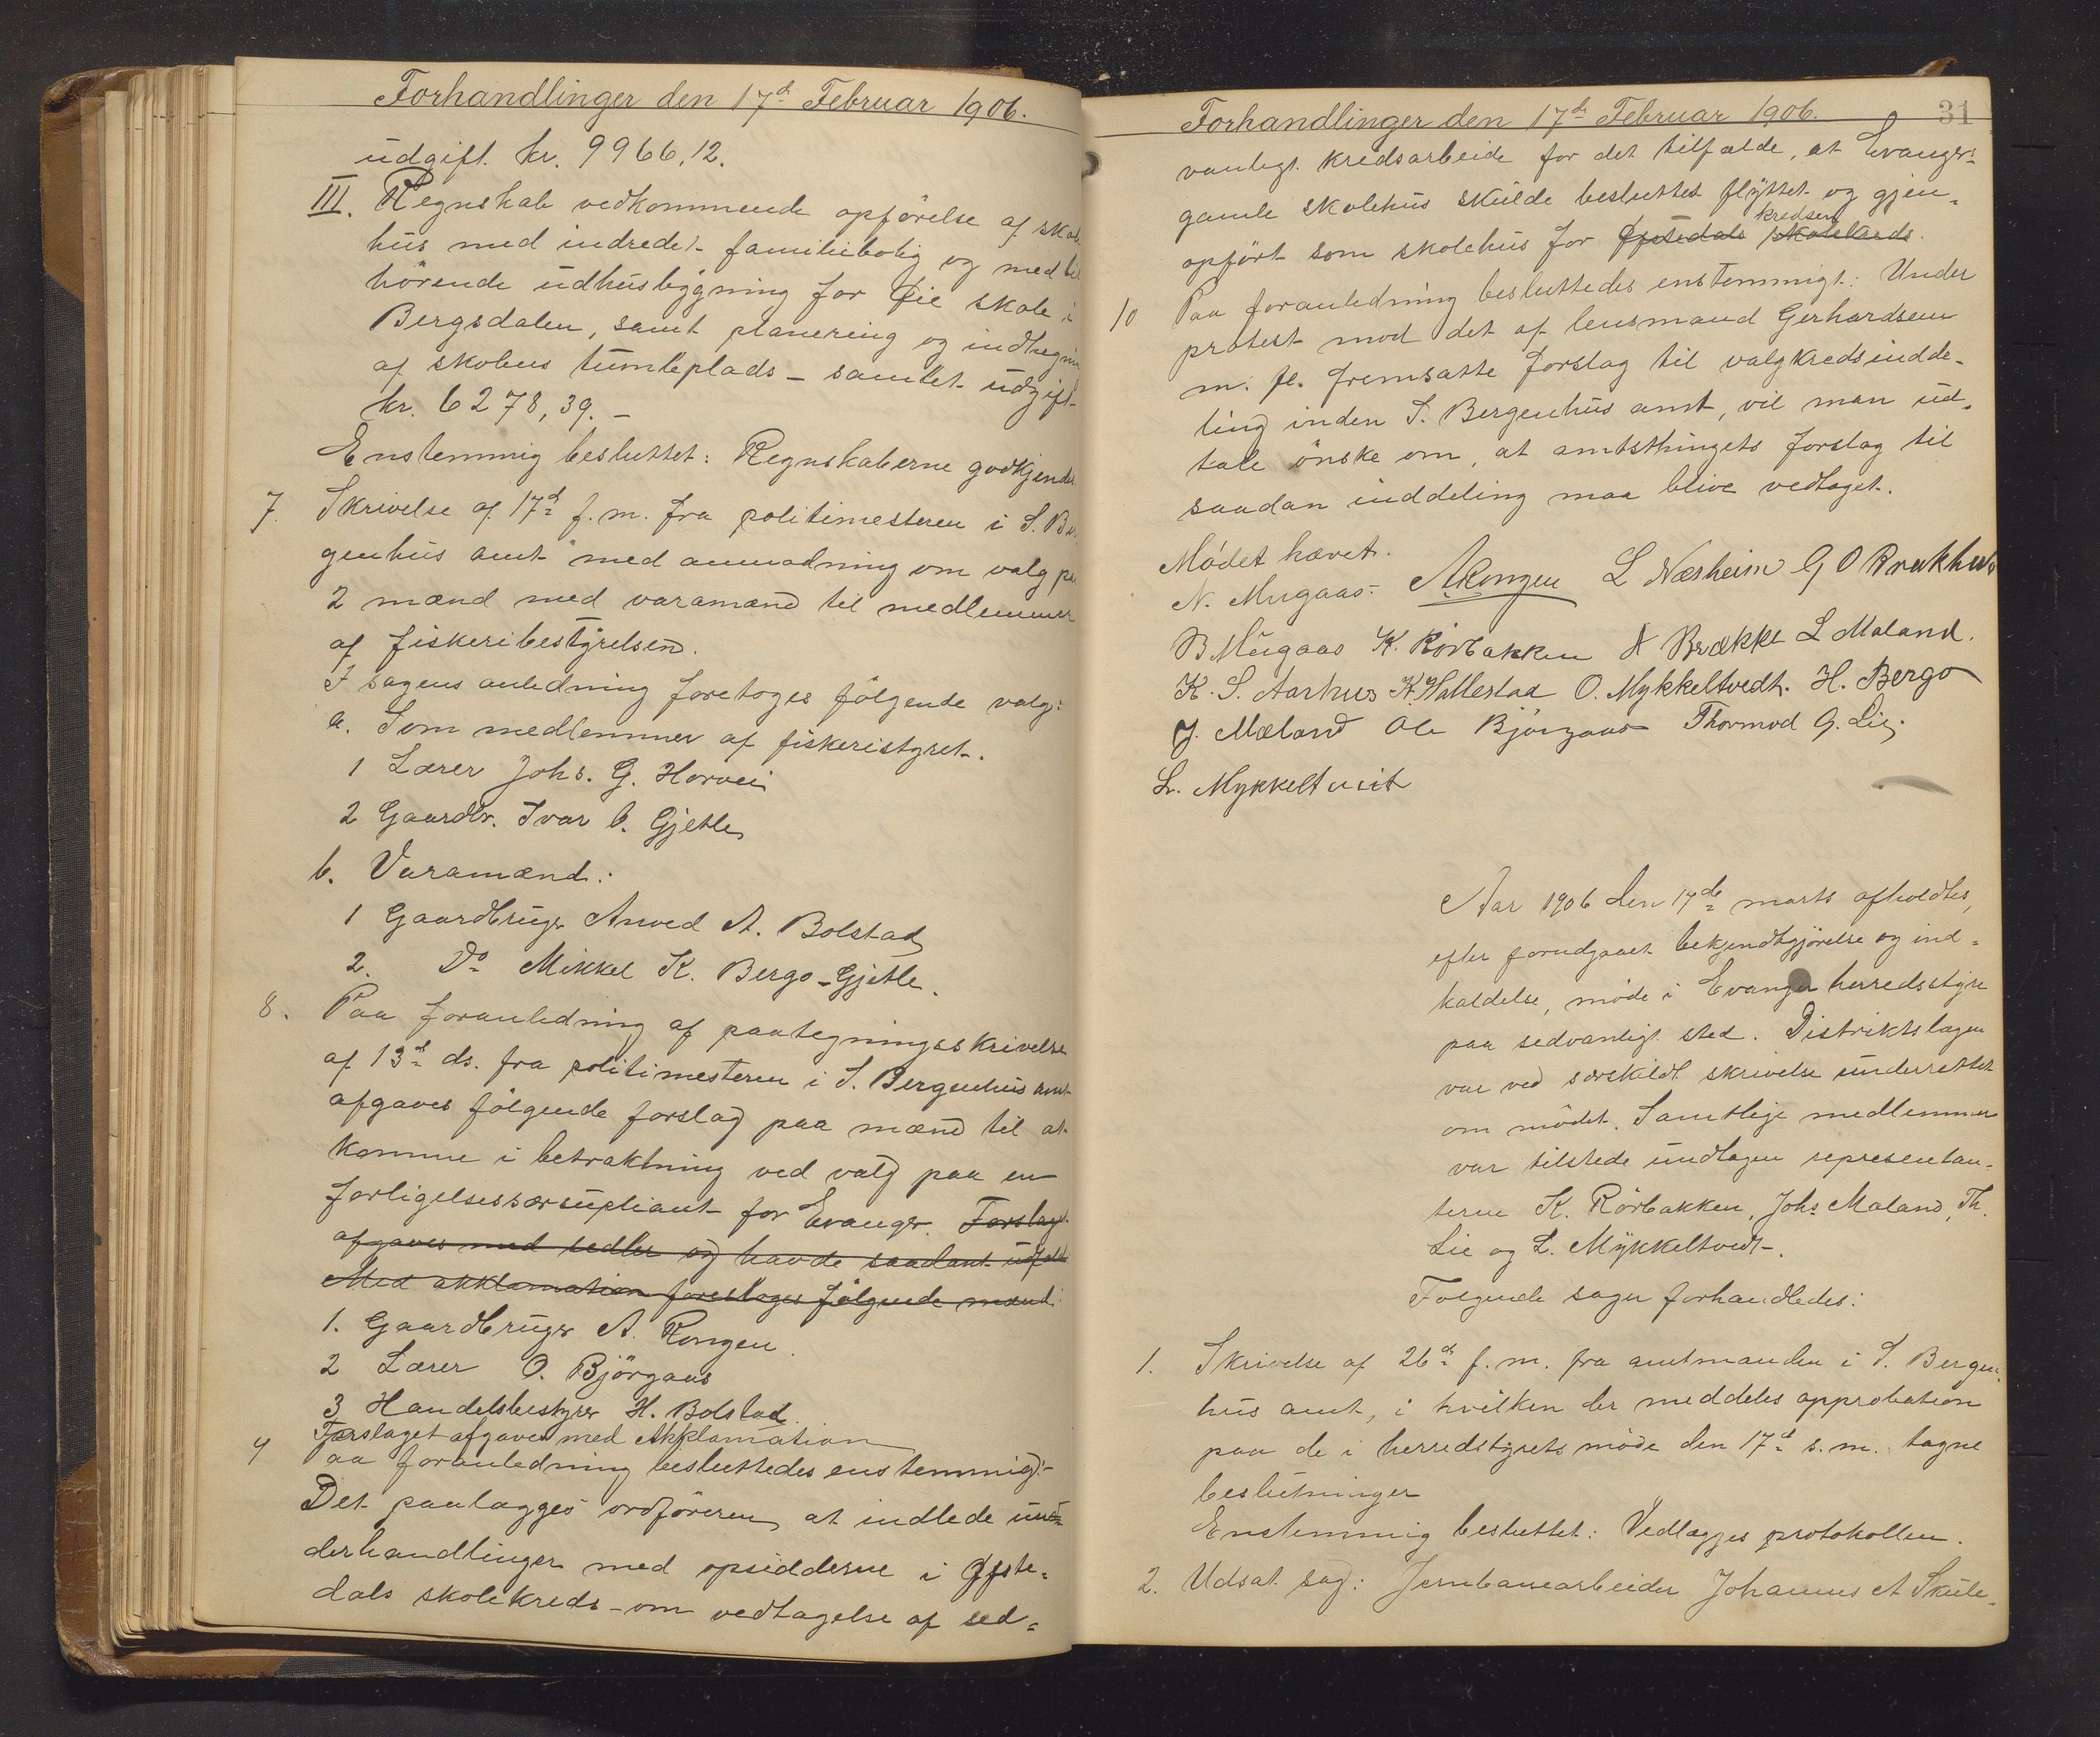 Forhandlinger den 17de Februar 1906.
udgift kr. 9966,12.
III. Regnskab vedkommende opförelse af skole
hus med indredet familiebolig og med til
hörende udhusbygning for Øie skole i
Bergsdalen, samt planering og indhegnin
af skolens tumleplads - samlet udgift
kr. 6278,39. -
Enstemmig besluttet: Regnskaberne godkjendes.
7. Skrivelse af 17de f. m. fra politimesteren i S. Ber
genhus amt med anmodning om valg på
2 mænd med varamænd til medlemmer
af fiskeribestyrelsen.
I sagens anledning foretoges fölgende valg:
a. Som medlemmer af fiskeristyret.
1 Lærer Johs. G. Horvei
2 Gaardbr. Ivar B. Gjetle
b. Varamænd:
1 Gaardbruger Anved A. Bolstad
2. Do Mikkel K. Bergo-Gjetle.
8. Paa foranledning af paategningsskrivelse
af 13de ds. fra politimesteren i S. Bergenhus amt
afgaves fölgende forslag paa mænd til at
komme i betraktning ved valg paa en
forligelsessærsupliant for Evanger. Forslag
afgaves med sedler og havde saadant udfald
Med akklamation foresloges fölgende mænd:
1. Gaardbruger A. Rongen.
2 Lærer O. Björgaas
3 Handelsbestyrer H. Bolstad.
Forslaget afgaves med Akklamation
9 Paa foranledning besluttedes enstemmig:-
Det paalægges ordföreren at indlede un-
derhandlinger med opsidderne i Øfste-
dals skolekreds - om vedtagelse af sed-
Forhandlinger den 17de Februar 1906. 31
vanligt kredsarbeide for det tilfælde, at Evanger-
gamle skolehus skulde besluttet flyttet og gjen-
kredsen
opfört som skolehus for Øfstedals skolekreds.
10 Paa foranledning besluttedes enstemmigt: Under
protest mod det af lensmand Gerhardsen
m. fl. fremsatte forslag til valgkredsindde-
ling inden S. Bergenhus amt, vil man ud-
tale önske om, at amtsthingets forslag til
saadan inddeling maa blive vedtaget.
Mödet hævet.
N. Mugaas. ARongen L Næsheim G O Brukhus
B Mugaas K. Rörbakken A Brække L Maland.
K. S. Aarhus K. Hallestad O. Mykkeltvedt. H. Bergo
J. Mæland Ole Björgaas Thormod G. Lie,
L. Mykkeltveit
Aar 1906 den 17de marts afholdtes,
efter forudgaaet bekjendtgjörelse og ind-
kaldelse, möde i Evanger herredsstyre
paa sedvanligt sted. Distriktslægen
var ved særskildt skrivelse underrettet
om mödet. Samtlige medlemmer
var tilstede undtagen representan-
terne K. Rörbakken, Johs Maland, Th.
Lie og L. Mykkeltvedt.
Folgende sager forhandledes:
1. Skrivelse af 26de f. m. fra amtmanden i S. Bergen-
hus amt, i hvilken der meddeles approbation
paa de i herredstyrets möde den 17de s. m. tagne
beslutninger
Enstemmig besluttet: Vedlægges protokollen.
2. Udsat sag: Jernbanearbeider Johannes A Skule-